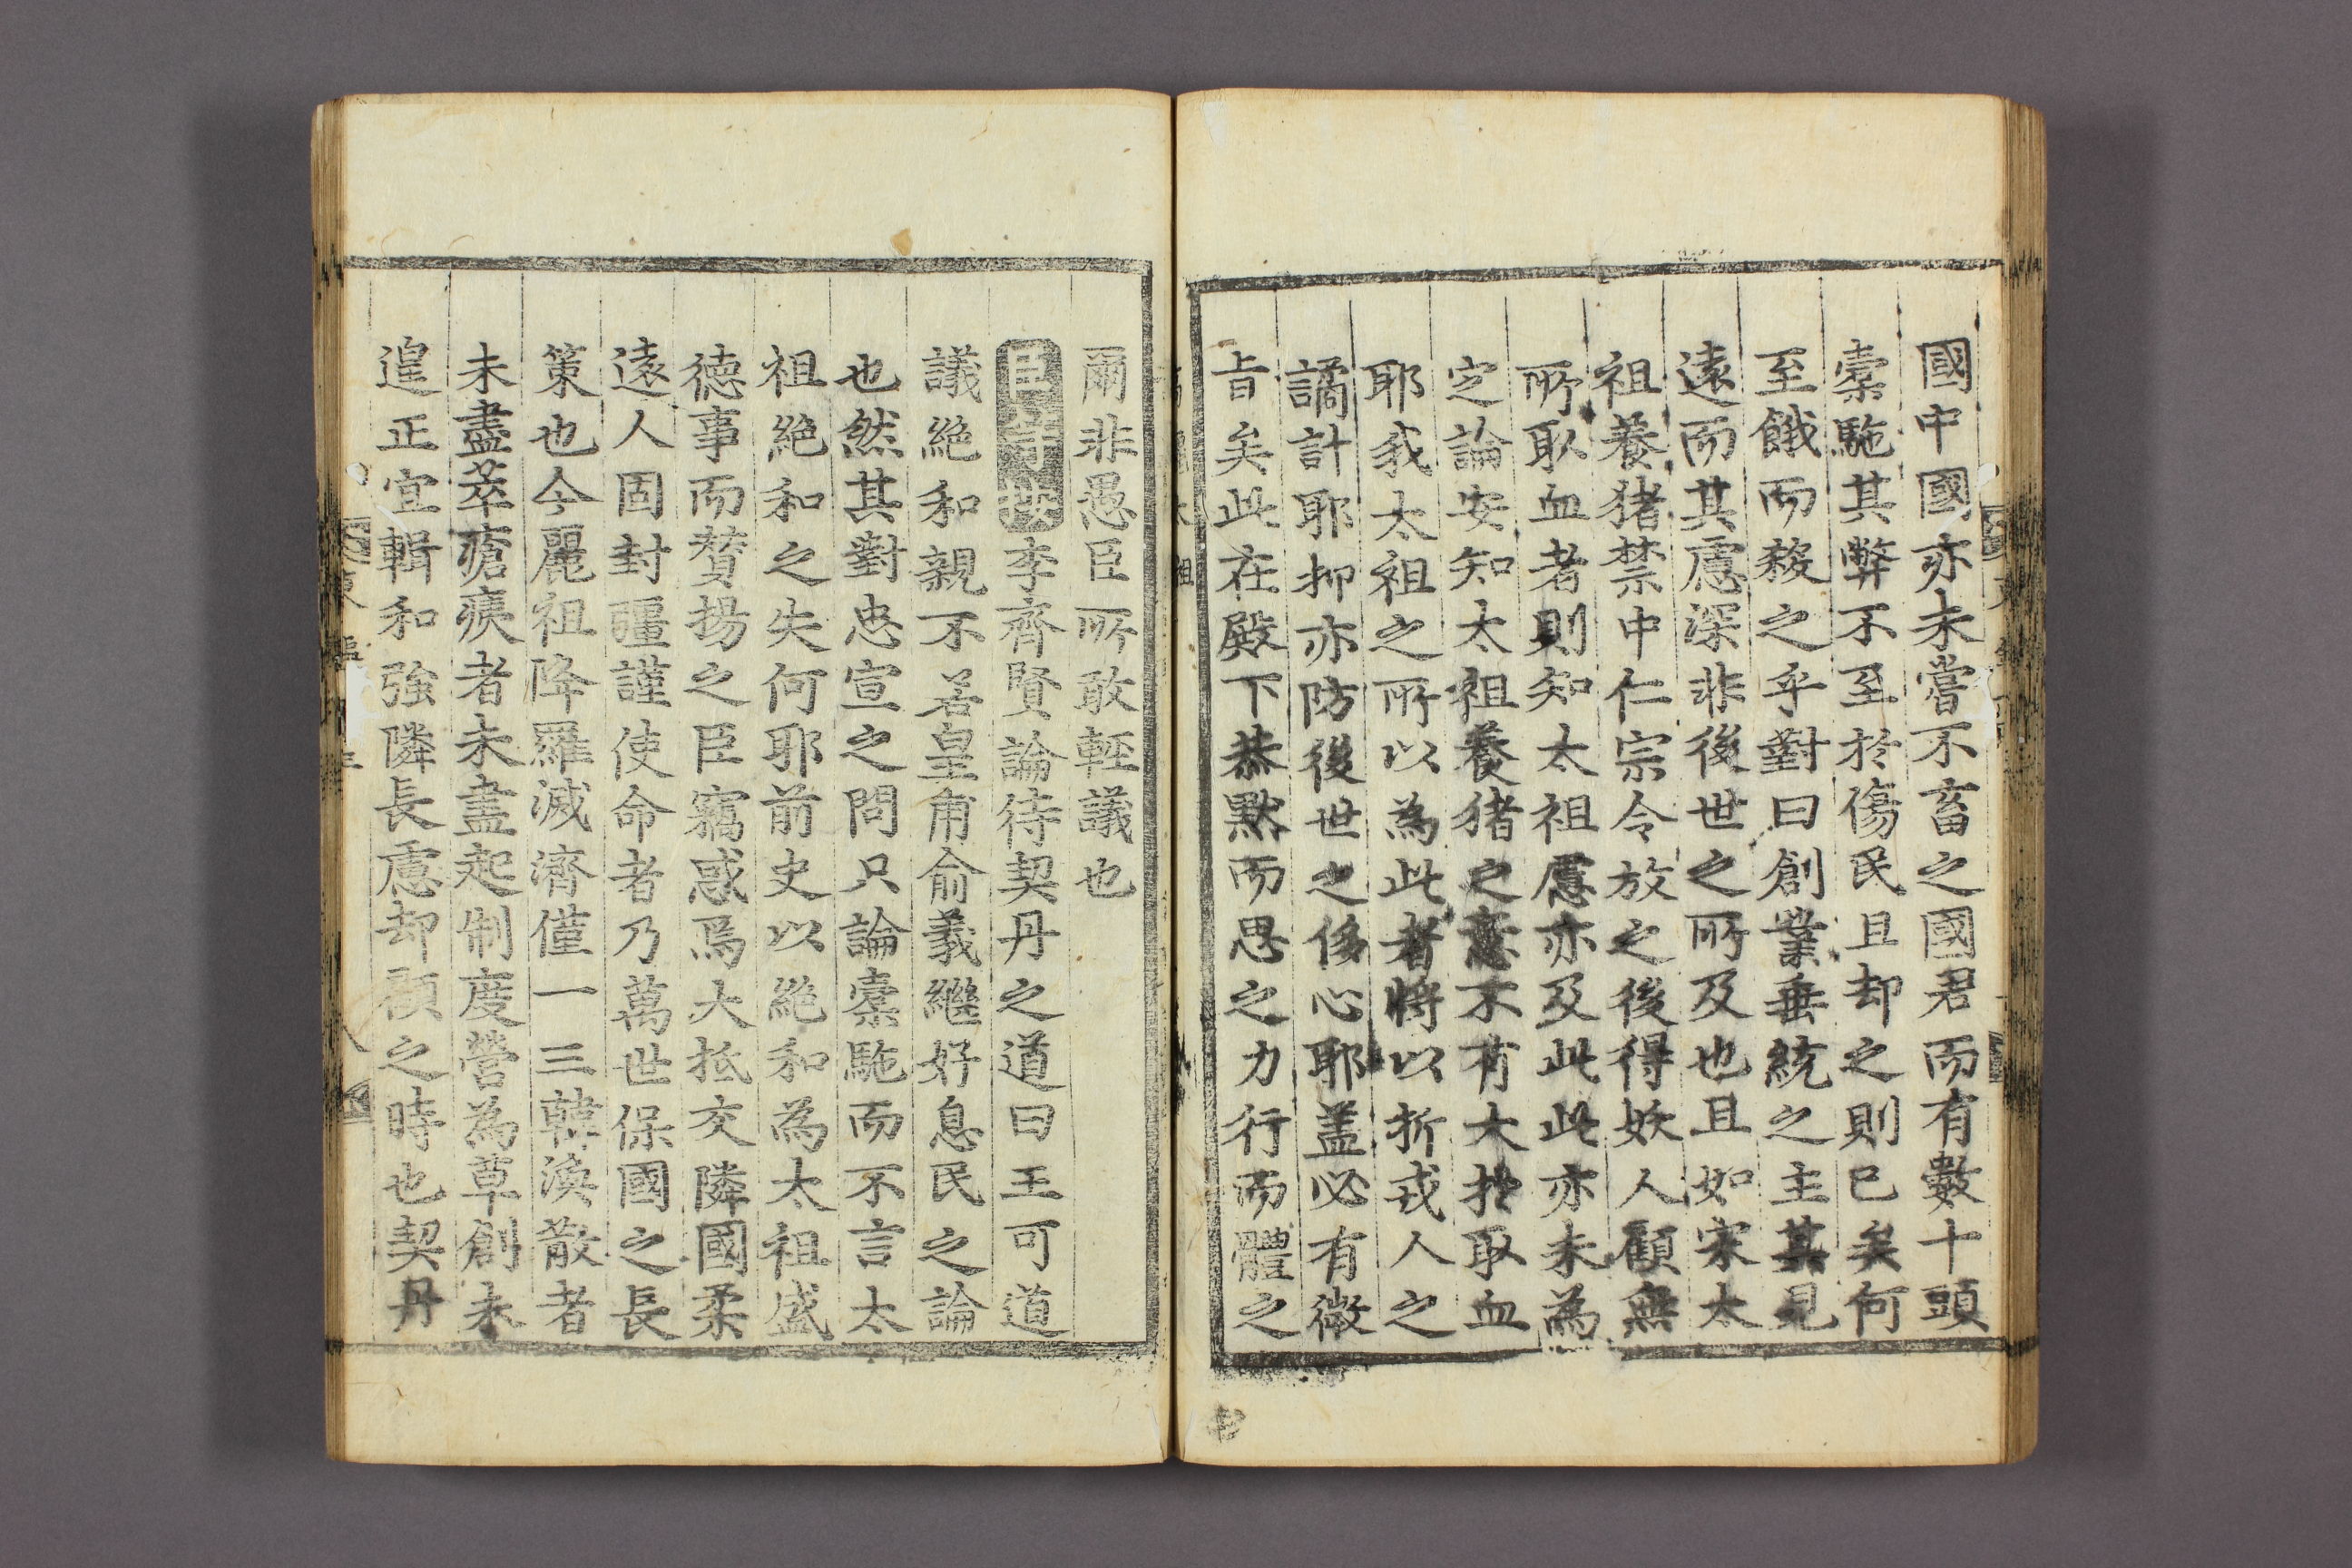 國中國亦未嘗不畜之國君而有數十頭
橐駞其弊不至於傷民且却之則已矣何
至餓而殺之乎對曰創業垂統之主其見
遠而其慮深非後世之所及也且如宋太
祖養猪禁中仁宗令放之後得妖人顧無
所取血者則知太祖慮亦及此此亦未為
定論安知太祖養猪之意不有大於取血
耶我太祖之所以為此者將以折戎人之
譎計耶抑亦防後世之侈心耶盖必有微
旨矣此在殿下恭默而思之力行而體之
爾非愚臣所敢輕議也
李齊賢論待契丹之道曰王可道
議絶和親不若皇甫俞義繼好息民之論
也然其對忠宣之問只論橐駞而不言太
祖絶和之失何耶前史以絶和為太祖盛
德事而賛揚之臣竊惑焉大抵交隣國柔
遠人固封疆謹使命者乃萬世保國之長
策也今麗祖降羅滅濟僅一三韓渙散者
未盡萃瘡痍者未盡起制度營為草創未
遑正宜輯和強隣長慮却顧之時也契丹